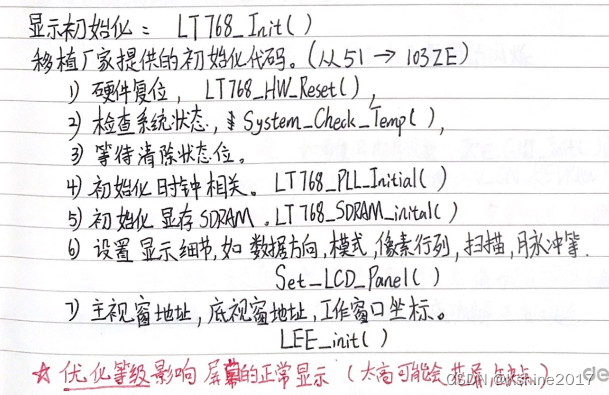 显示初始化： LT768_Init()
移植厂家提供的初始化代码。(从51 → 103ZE)
1) 硬件复位， LT768_HW_Reset()，
2) 检查系统状态， System_Check_Temp()，
3) 等待清除状态位。
4) 初始化时钟相关。LT768_PLL_Initial()
5) 初始化显存SDRAM。LT768_SDRAM_inital()
6) 设置显示细节，如数据方向，模式，像素行列，扫描，脉冲等.
Set_LCD_Panel()
7) 主视窗地址，底视窗地址，工作窗口坐标。
LEE_init()
☆ 优化等级影响屏幕的正常显示 (太高可能会花屏，缺点)
CSDN @Kshine2017
de